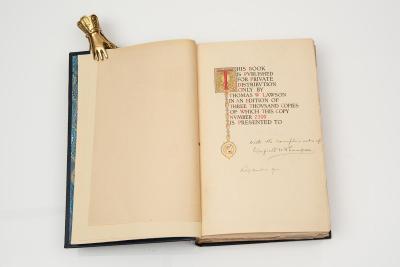 THIS BOOK
IS PUBLISHED
FOR PRIVATE
DISTRIBUTION
ONLY BY
THOMAS W LAWSON
IN AN EDITION OF
THREE THOUSAND COPIES
OF WHICH THIS COPY
NUMBER
IS PRESENTED TO
With the compliments of